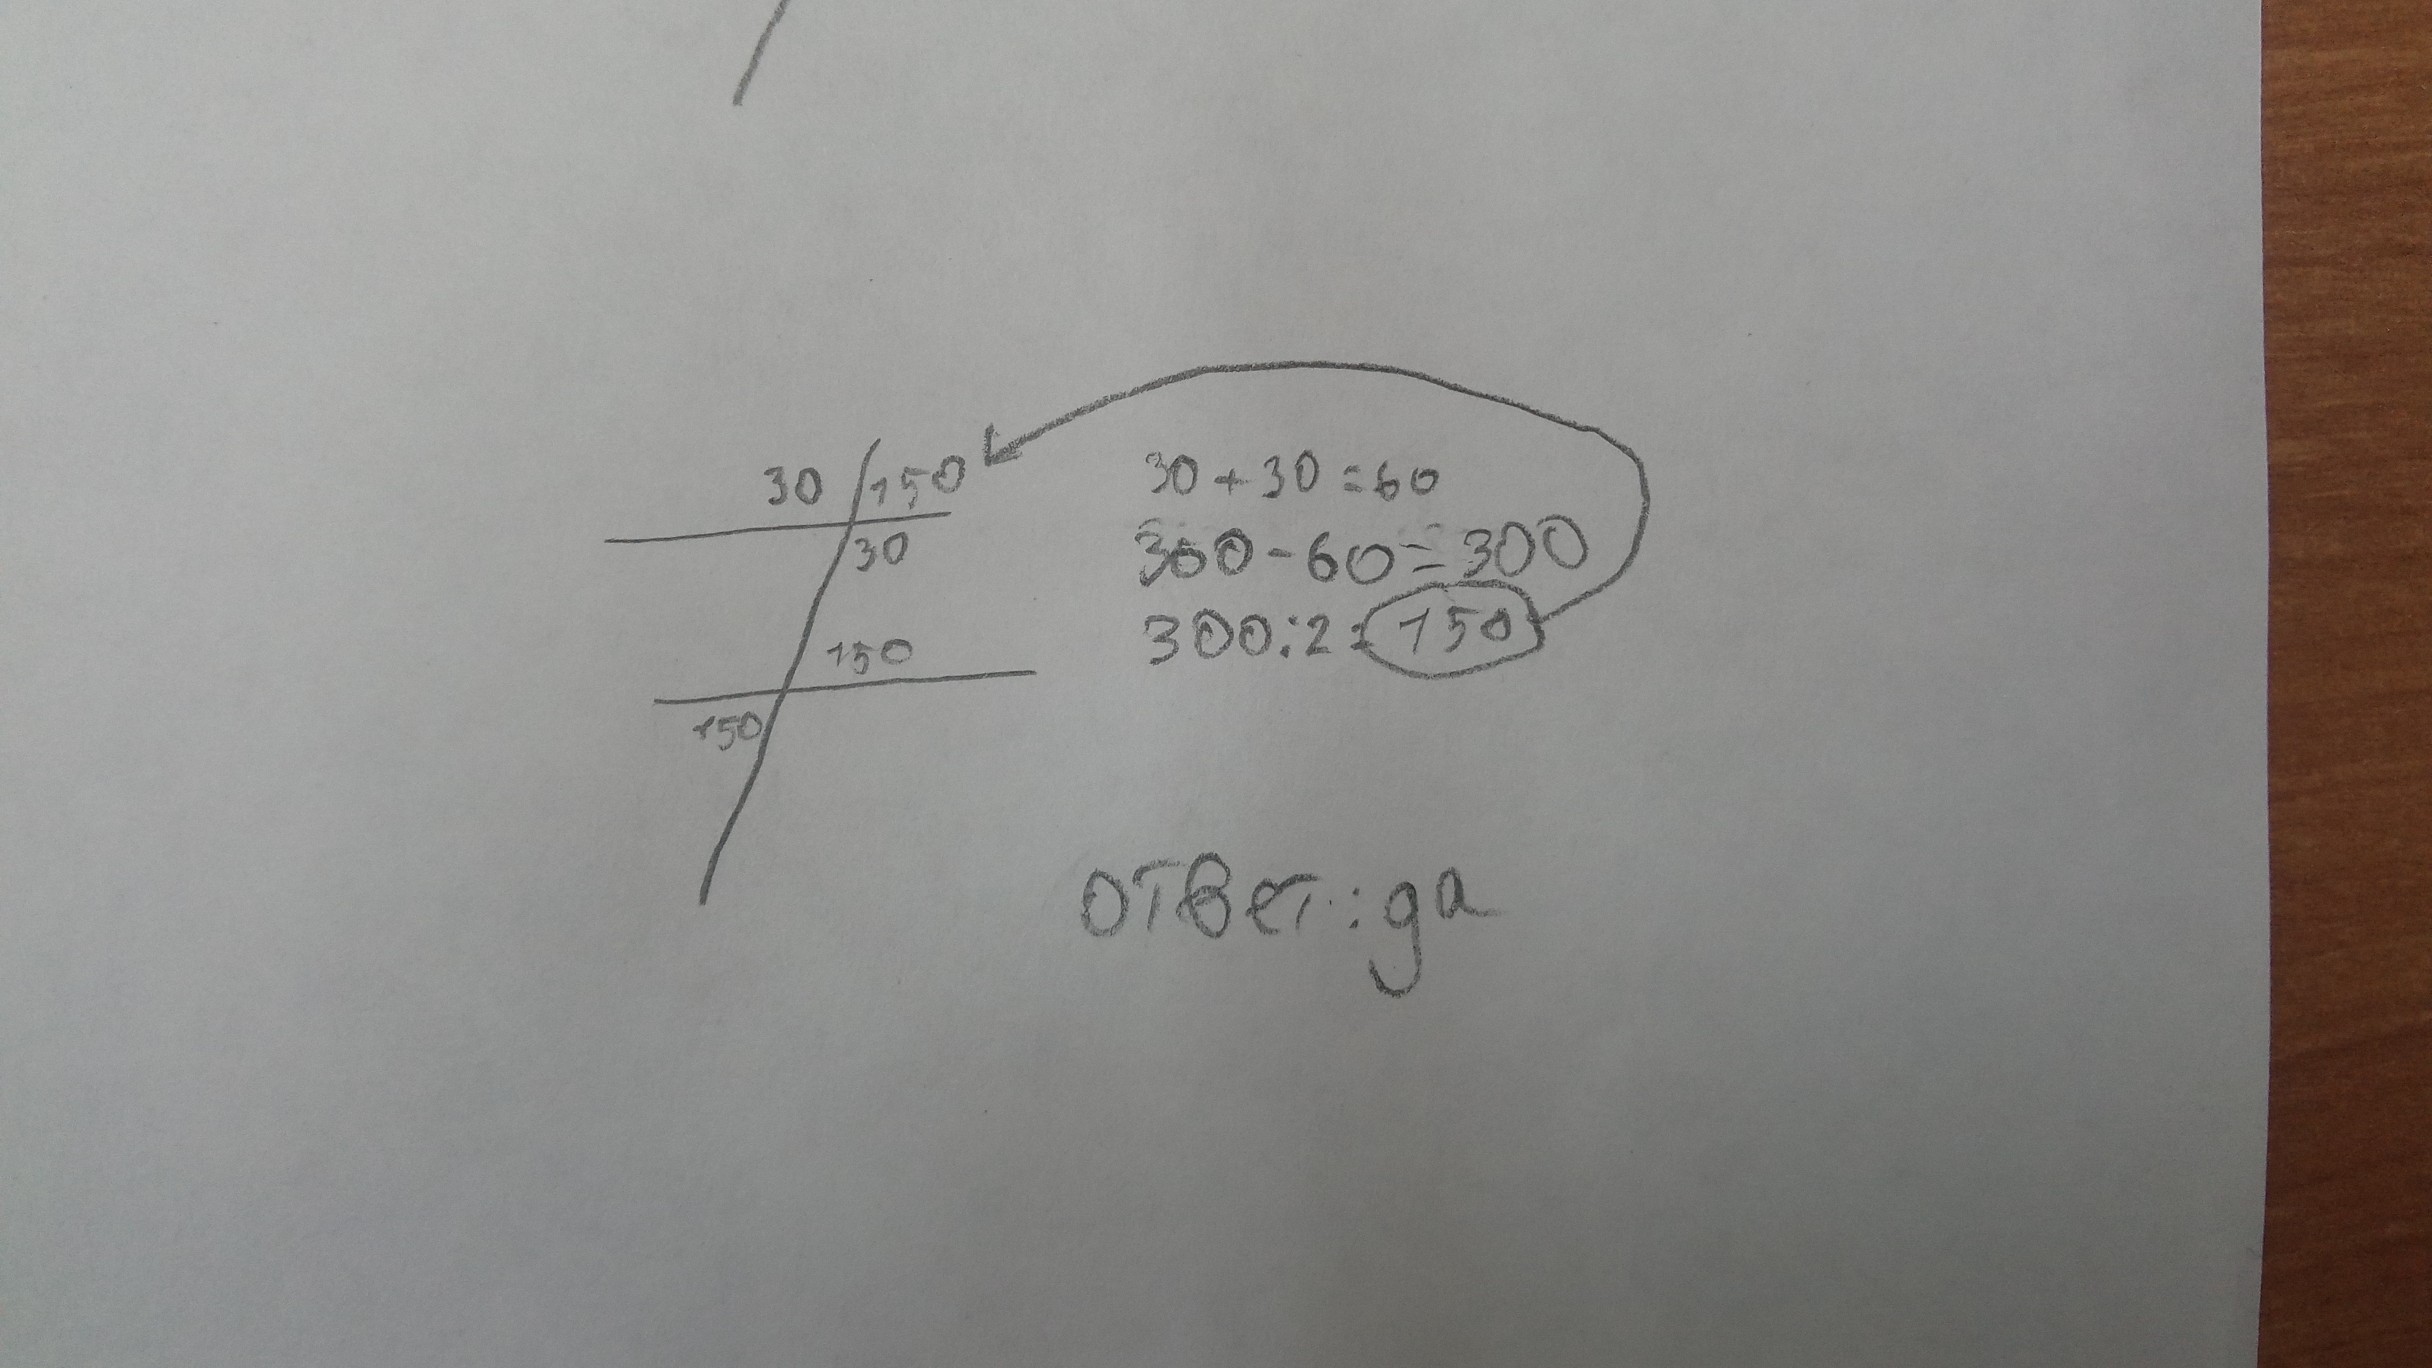 30 150
30
150
150
30+30=60
360-60=300
300:2=150
ответ:да